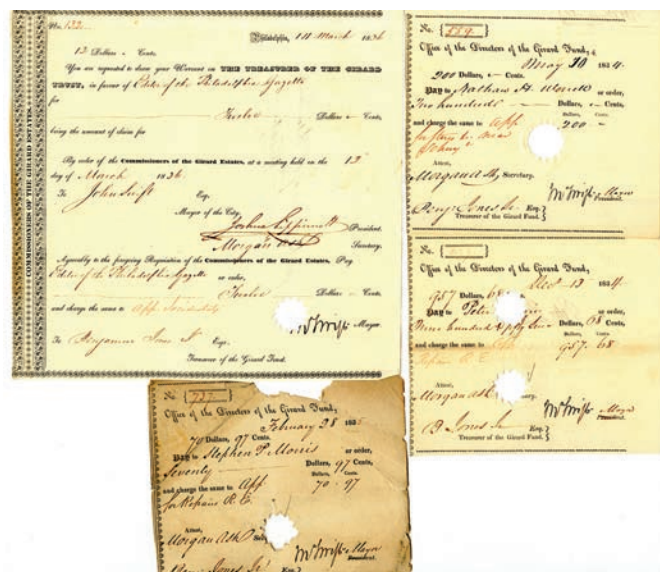 COMMISSIONERS OF THE GIRARD ESTATES.
No. 132
Philadelphia, 14 March 1836
12 Dollars " Cents.
You are requested to show your Warrant on THE TREASURER OF THE GIRARD
TRUST, in favour of Editor of the Philadelphia Gazette
for
Twelve Dollars " Cents,
being the amount of claim for
By order of the Commissioners of the Girard Estates, at a meeting held on the 12
day of March 1836
To John Swift Esq.
Mayor of the City.
Joshua Lippincott President.
Morgan Ash Secretary.
Agreeably to the foregoing Requisition of the Commissioners of the Girard Estates, Pay
Editor of the Philadelphia Gazette or order,
Twelve Dollars " Cents,
and charge the same to App. Incidentals
Jno Swift Mayor.
To Benjamin Jones Jr Esq.
Treasurer of the Girard Fund.
No. 559.
Office of the Directors of the Girard Fund,
May 10 1834.
200 Dollars, " Cents.
PAY to Nathan H. or order,
Two hundred Dollars, " Cents,
Dollars, Cents.
and charge the same to App 200 "
for
Attest,
Morgan Ash Secretary.
Jno Swift Mayor
President.
Benj. Jones Jr. Esq.
Treasurer of the Girard Fund.
No.
Office of the Directors of the Girard Fund,
Dec. 13 1834
957 Dollars, 68 Cents.
PAY to Peter or order,
Nine hundred & fifty seven Dollars, 68 Cents,
Dollars, Cents.
and charge the same to App 957. 68
Repairs R. E.
Attest,
Morgan Ash Secretary.
Jno Swift Mayor
President.
B. Jones Jr Esq.
Treasurer of the Girard Fund.
No. 727.
Office of the Directors of the Girard Fund,
February 28 183
70 Dollars, 97 Cents.
PAY to Stephen P. Morris or order,
Seventy Dollars, 97 Cents,
Dollars, Cents.
and charge the same to App 70 . 97
for Repairs R. E.
Attest,
Morgan Ash Sec
Jno Swift Mayor
President.
Benj Jones Jr Esq.